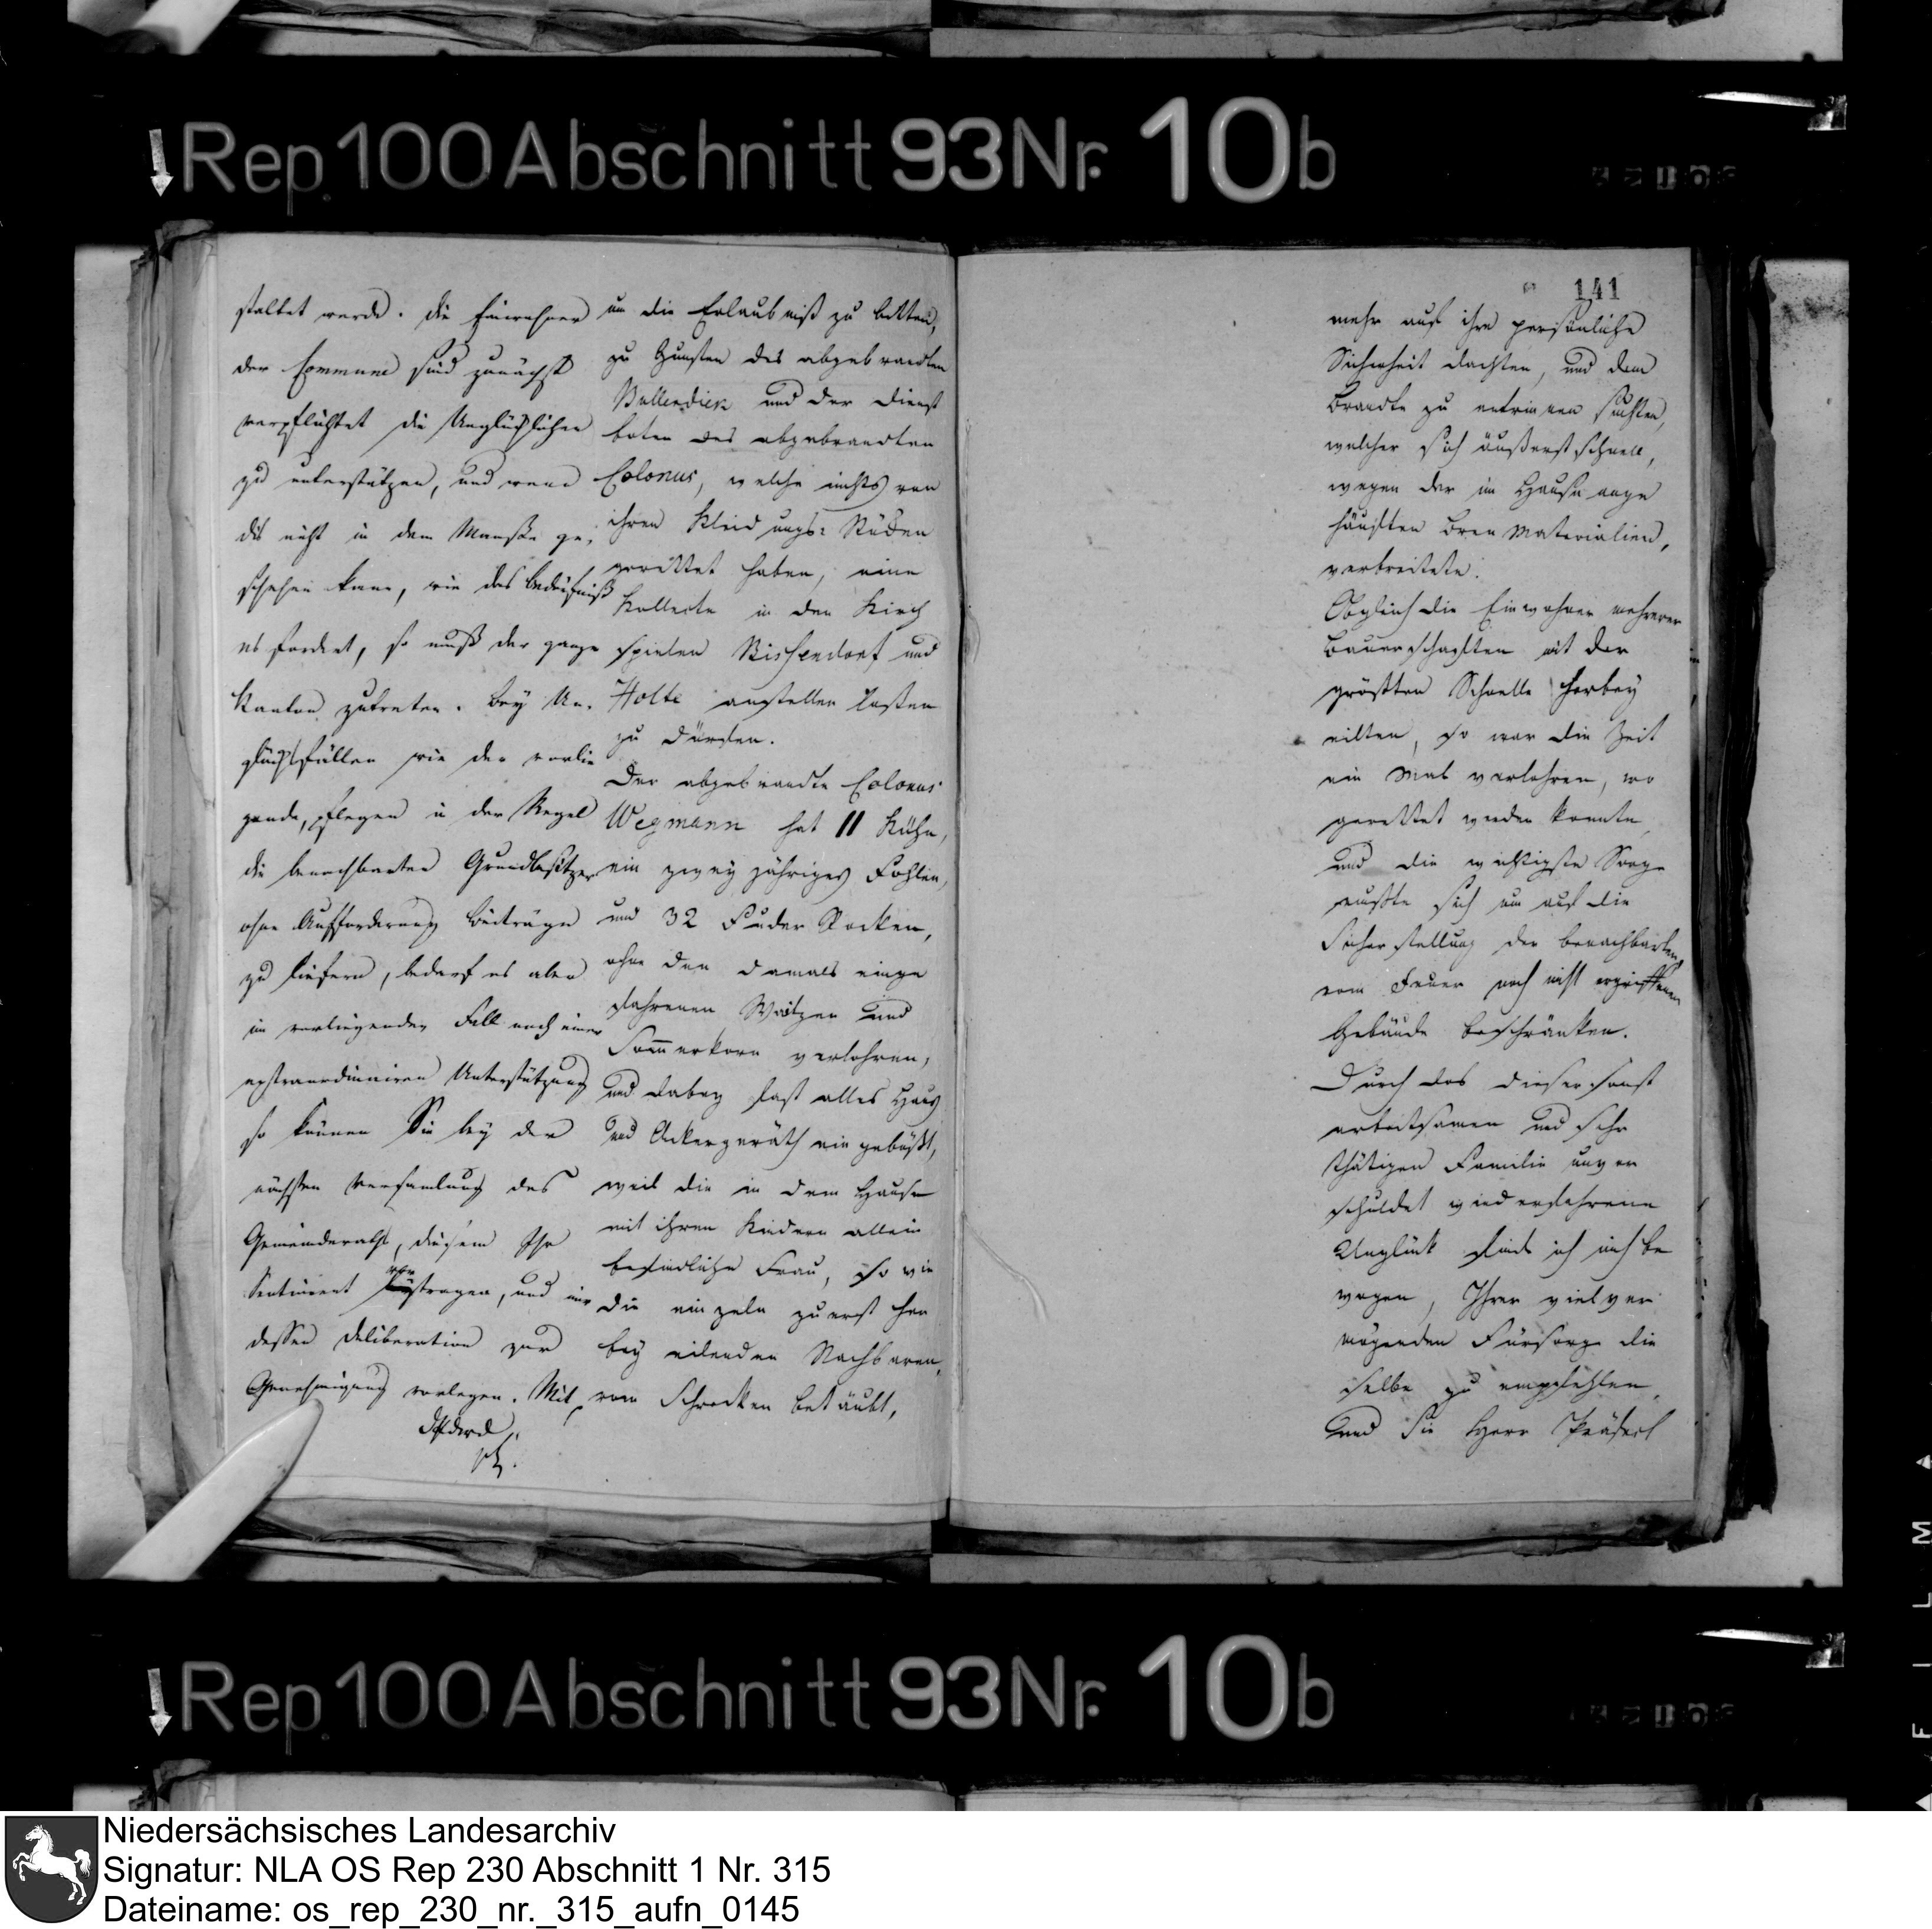 Rep. 100 Abschnitt 93 Nr. 10b
staltet werde. Die Einwohner
der Commune sind zunächst
verpflichtet die Unglücklichen
zu unterstützen, und wenn
dis nicht in dem Maaße ge-
schehen kann, wie das Bedürfniß
es fordert, so muß der ganze
Kanton zutreten. Bey Un-
glücksfällen wie der vorlie
gende, pflegen in der Regel
die benachbarten Grundbesitzer
ohne Aufforderung Beiträge
zu liefern, bedarf es aber
im vorliegenden Fall noch einer
extraordinairen Unterstützung
so können Sie bey der
nächsten Versamlung des
Gemeinderaths, diesem Ihr
Sentiment vortragen, und mir
dessen Deliberation zur
Genehmigung vorlegen. Mit
um die Erlaubniß zu bitten,
zu Gunsten des abgebrandten
und der Dienst
boten des abgebrandten
Colonus, welche nichts von
ihren Kleidungs-Stücken
gerettet haben, eine
Kollecte in den Kirch
spielen Bissendorf und
Holte anstellen lassen
zu dürfen.
Der abgebrandte Colonus
Wegmann hat 11 Kühe,
ein zwey jähriges Fohlen,
und 32 Fuder Rocken,
ohne den damals einge
fahrenen Waitzen und
Sommerkorn verlohren,
und dabey fast alles Haus
und Ackergeräth eingebüßt,
weil die in dem Hause
mit ihren Kindern allein
befindliche Frau, so wie
die einzeln zuerst her
bey eilenden Nachbaren,
vom Schrecken betäubt,
141
mehr auf ihre persönliche
Sicherheit dachten, und dem
Brandte zu entrinnen suchten,
welcher sich äußerst schnell,
wegen der im Hause ange
häuften Bren Materialien,
verbreitete.
Obgleich die Einwohner mehrerer
Bauerschaften mit der
größten Schnelle herbey
eilten, so war die Zeit
ein Mal verlohren, wo
gerettet werden konnte,
und die wichtigste Sorge
mußte sich nun auf die
Sicherstellung der benachbarten
vom Feuer noch nicht ergriffenen
Gebäude beschränken.
Durch das dieser sonst
arbeitsamen und sehr
thätigen Familie unver
schuldet wiederfahrene
Unglück finde ich mich be
wogen, Ihrer vielver
mögenden Fürsorge die
selbe zu empfehlen,
und Sie Herr Präfect
Rep. 100 Abschnitt 93 Nr. 10b
Niedersächsisches Landesarchiv
Signatur: NLA OS Rep 230 Abschnitt 1 Nr. 315
Dateiname: os_rep_230_nr._315_aufn_0145